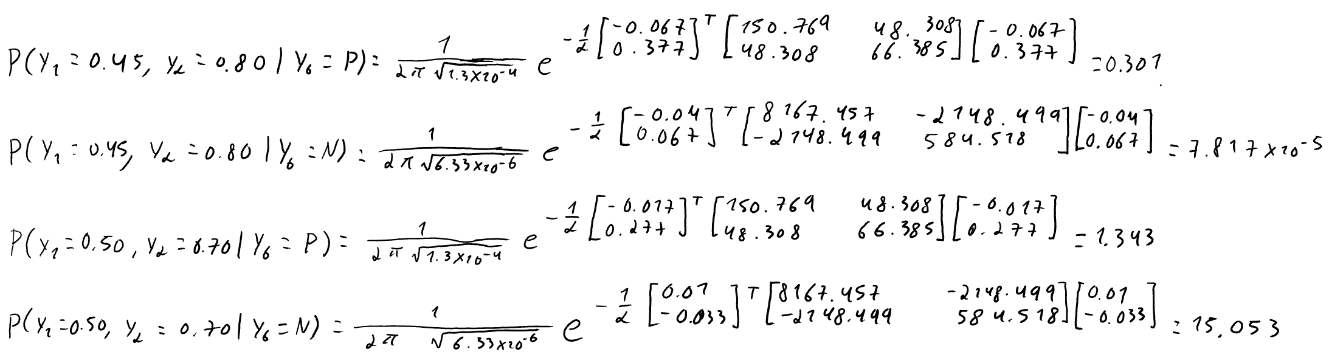 P(y₁ = 0.45, y₂ = 0.80 | y₆ = P) = \frac{1}{2π \sqrt{1.3×10^{-4}}} e^{-\frac{1}{2} \begin{bmatrix} -0.067 \\ 0.377 \end{bmatrix}^T \begin{bmatrix} 150.769 & 48.308 \\ 48.308 & 66.385 \end{bmatrix} \begin{bmatrix} -0.067 \\ 0.377 \end{bmatrix}} = 0.301
P(y₁ = 0.45, y₂ = 0.80 | y₆ = N) = \frac{1}{2π \sqrt{6.33×10^{-6}}} e^{-\frac{1}{2} \begin{bmatrix} -0.04 \\ 0.067 \end{bmatrix}^T \begin{bmatrix} 8167.457 & -2148.499 \\ -2148.499 & 584.518 \end{bmatrix} \begin{bmatrix} -0.04 \\ 0.067 \end{bmatrix}} = 7.817×10^{-5}
P(y₁ = 0.50, y₂ = 0.70 | y₆ = P) = \frac{1}{2π \sqrt{1.3×10^{-4}}} e^{-\frac{1}{2} \begin{bmatrix} -0.017 \\ 0.277 \end{bmatrix}^T \begin{bmatrix} 150.769 & 48.308 \\ 48.308 & 66.385 \end{bmatrix} \begin{bmatrix} -0.017 \\ 0.277 \end{bmatrix}} = 1.343
P(y₁ = 0.50, y₂ = 0.70 | y₆ = N) = \frac{1}{2π \sqrt{6.33×10^{-6}}} e^{-\frac{1}{2} \begin{bmatrix} 0.01 \\ -0.033 \end{bmatrix}^T \begin{bmatrix} 8167.457 & -2148.499 \\ -2148.499 & 584.518 \end{bmatrix} \begin{bmatrix} 0.01 \\ -0.033 \end{bmatrix}} = 15.053